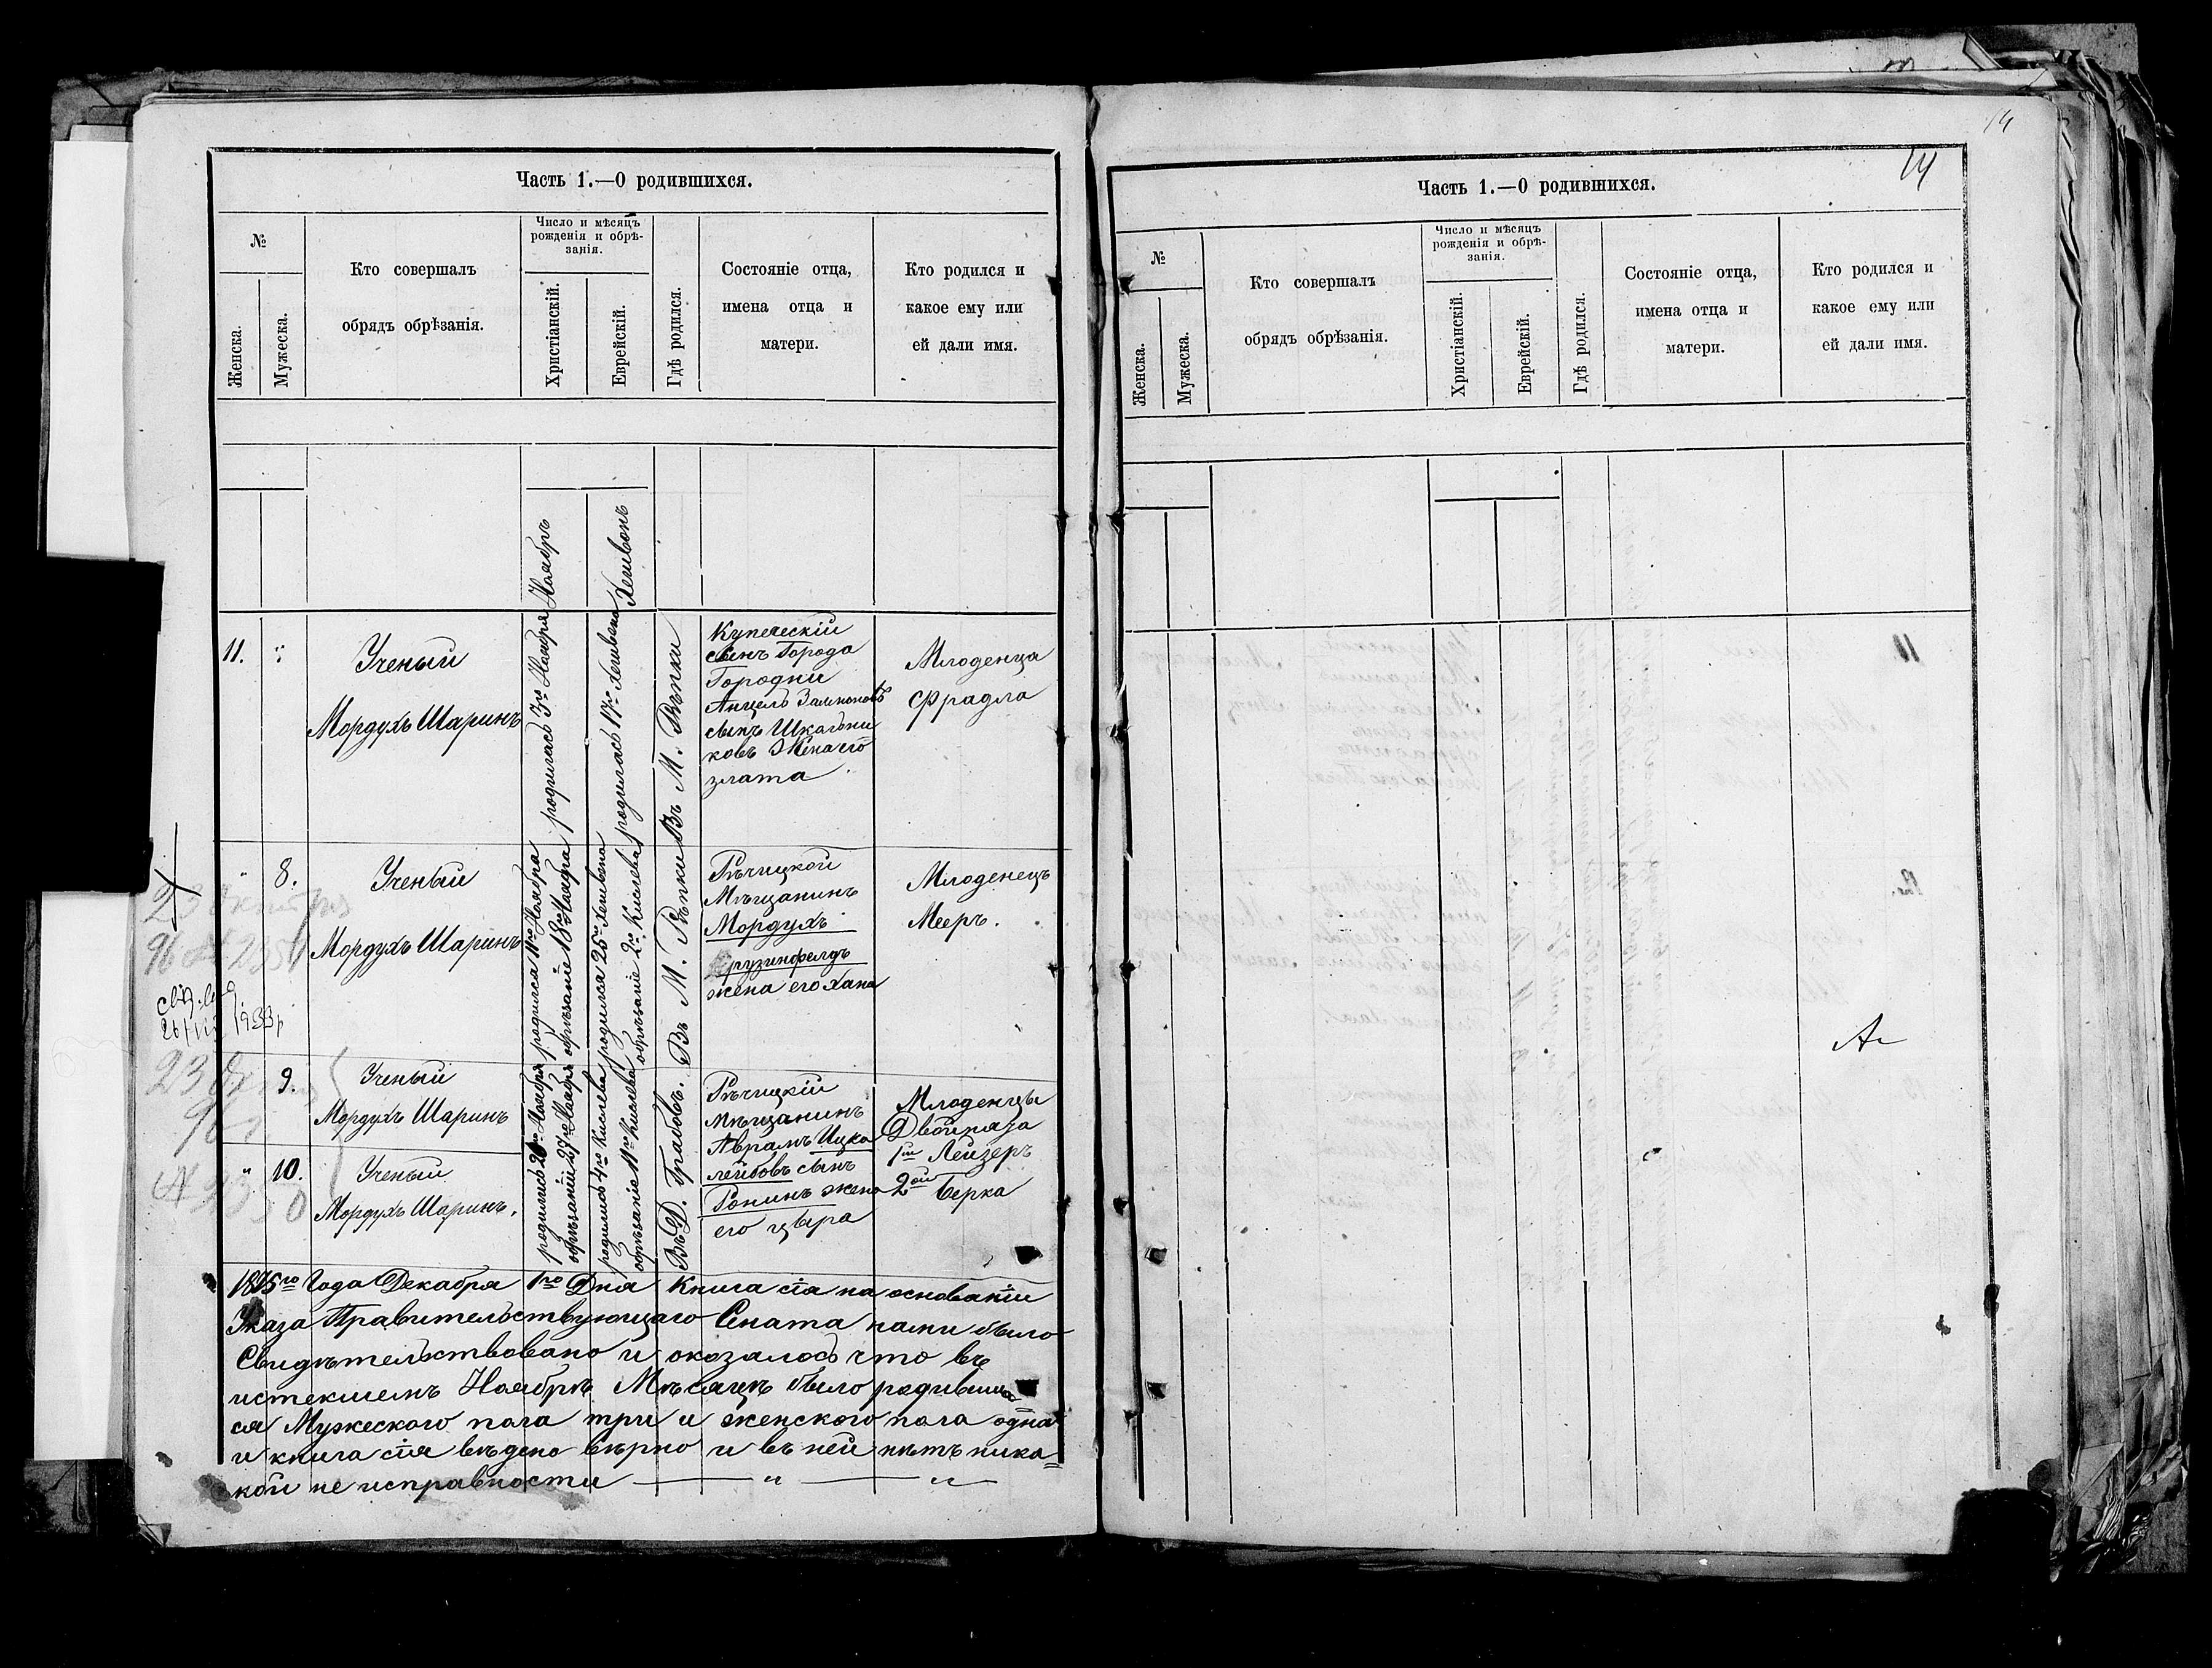 Часть 1.—О родившихся.
№
Женска.
Мужеска.
Кто совершалъ
обрядъ обрѣзанія.
Число и мѣсяцъ
рожденія и обрѣ-
занія.
Христіанскій.
Еврейскій.
Гдѣ родился.
Состояніе отца,
имена отца и
матери.
Кто родился и
какое ему или
ей дали имя.
Ноябрь
Хешвонъ
11.
Ученый
Мордухъ Шаринъ
родилась 3го Ноября
родилась 17го Хешвена
Въ М. Рѣпки
Купеческій
сынъ Города
Городни
Анцелъ Залмоновъ
сынъ Школьни
ковъ Жена его
злата
Младенца
Фрадла
8.
Ученый
Мордухъ Шаринъ
родился 11го Ноября
обрѣзаніе 18го Ноября
родился 25го Хешвена
обрѣзаніе 2го Кислева
Въ М. Рѣпки
Рѣчицкой
Мѣщанинъ
Мордухъ
жена его Хана
Младенецъ
Мееръ.
9.
Ученый
Мордухъ Шаринъ
10.
Ученый
Мордухъ Шаринъ.
родились 20го Ноября
обрѣзаніи 27го Ноября
родились 4го Кислева
обрѣзаніе 11го Кислева
Въ Д. Грабовъ.
Рѣчицкій
мѣщанинъ
Аврамъ Ицко
лейбовъ сынъ
Ронинъ жена
его цыра
Младенцы
Двойняза
1й Лейзеръ
2ой Берка
1875го Года Декабря 1го Дня Книга сія на основаніи
Указа Правительствующаго Сената нами было
Свидѣтельствовано и оказалось что въ
истекшемъ Ноябрѣ Мѣсяцѣ было родивши
ся Мужескаго пола три и женскаго пола одна
и книга сія вѣдено вѣрно и въ ней нѣтъ ника=
кой не исправности — " — "
14
14
Часть 1.—О родившихся.
№
Женска.
Мужеска.
Кто совершалъ
обрядъ обрѣзанія.
Число и мѣсяцъ
рожденія и обрѣ-
занія.
Христіанскій.
Еврейскій.
Гдѣ родился.
Состояніе отца,
имена отца и
матери.
Кто родился и
какое ему или
ей дали имя.